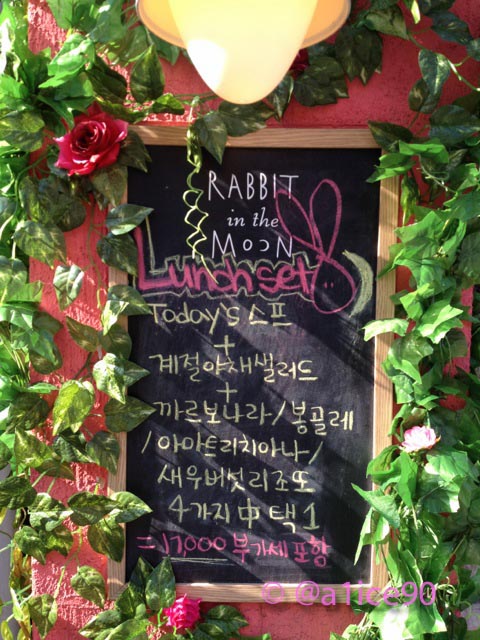 RABBIT
in the
MOON
Lunch set
Today's 스프
+
계절야채샐러드
+
까르보나라/봉골레
/아마트리치아나/
새우버섯리조또
4가지 中 택1
= 17,000 부가세 포함
© @a1ice90